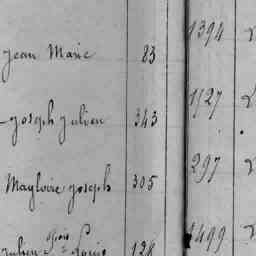 Jean Marie 83 1394
Joseph Julien 343 1127
Mayloire Joseph 305 297
Julien Louis 128 1499